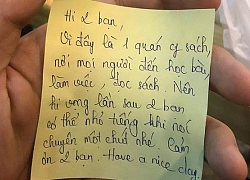 Hi 2 bạn,
Vì đây là 1 quán cf sách,
nơi mọi người đến học bài,
làm việc, đọc sách. Nên
hi vọng lần sau 2 bạn
có thể nhỏ tiếng khi nói
chuyện một chút nhé. Cảm
ơn 2 bạn. Have a nice day.